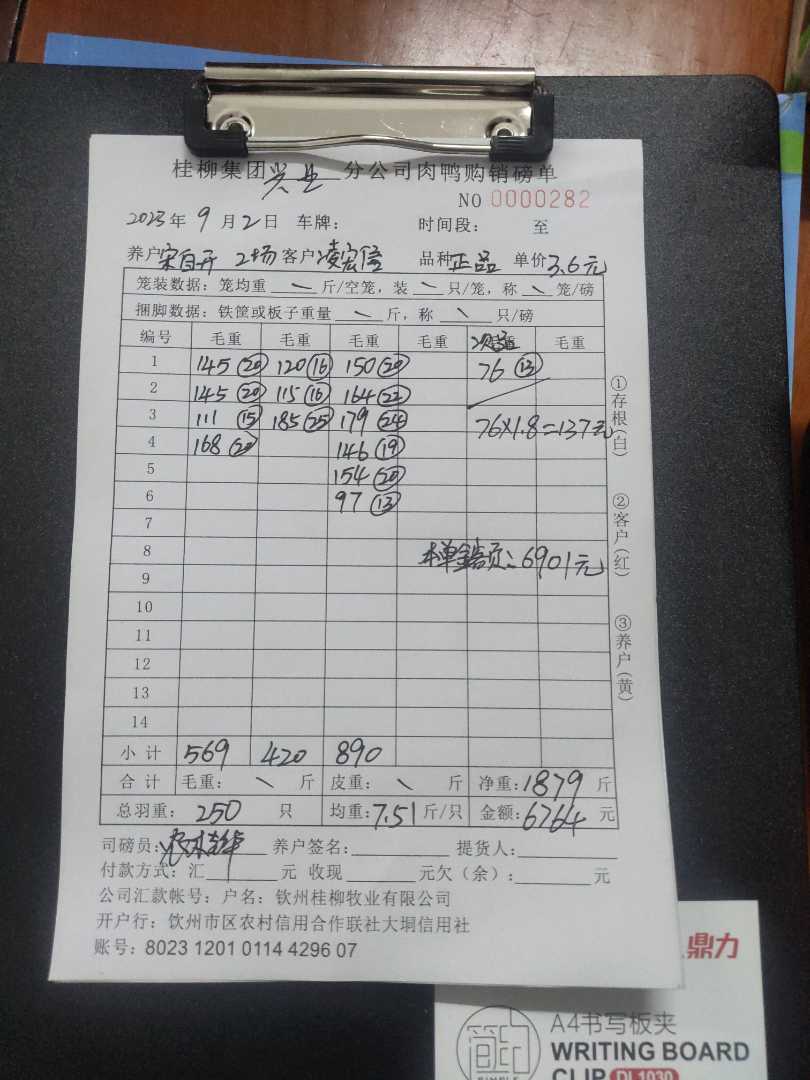 桂柳集团兴业分公司肉鸭购销磅单
NO 0000282
2023年 9月2日 车牌: 时间段: 至
养户宋自开 2场 客户凌宏信 品种正品 单价3.6元
笼装数据: 笼均重 \ 斤/空笼, 装 \ 只/笼, 称 \ 笼/磅
捆脚数据: 铁筐或板子重量 \ 斤, 称 \ 只/磅
编号 毛重 毛重 毛重 毛重 毛重
1 145 ⑳ 120 ⑯ 150 ⑳ 76 ⑬
2 145 ⑳ 115 ⑯ 164 ㉒
3 111 ⑮ 185 ㉕ 179 ㉔ 76×1.8=137元
4 168 ⑳ 146 ⑲
5 154 ⑳
6 97 ⑬
7
8 本单金额: 6901元
9
10
11
12
13
14
小计 569 420 890
合计 毛重: \ 斤 皮重: \ 斤 净重: 1879 斤
总羽重: 250 只 均重: 7.51 斤/只 金额: 6764 元
司磅员: 养户签名: 提货人:
付款方式: 汇 元 收现 元欠(余): 元
公司汇款帐号: 户名: 钦州桂柳牧业有限公司
开户行: 钦州市区农村信用合作联社大垌信用社
账号: 8023 1201 0114 4296 07
①存根(白)
②客户(红)
③养户(黄)
鼎力
简约
SIMPLE
A4书写板夹
WRITING BOARD
CLIP DL1030